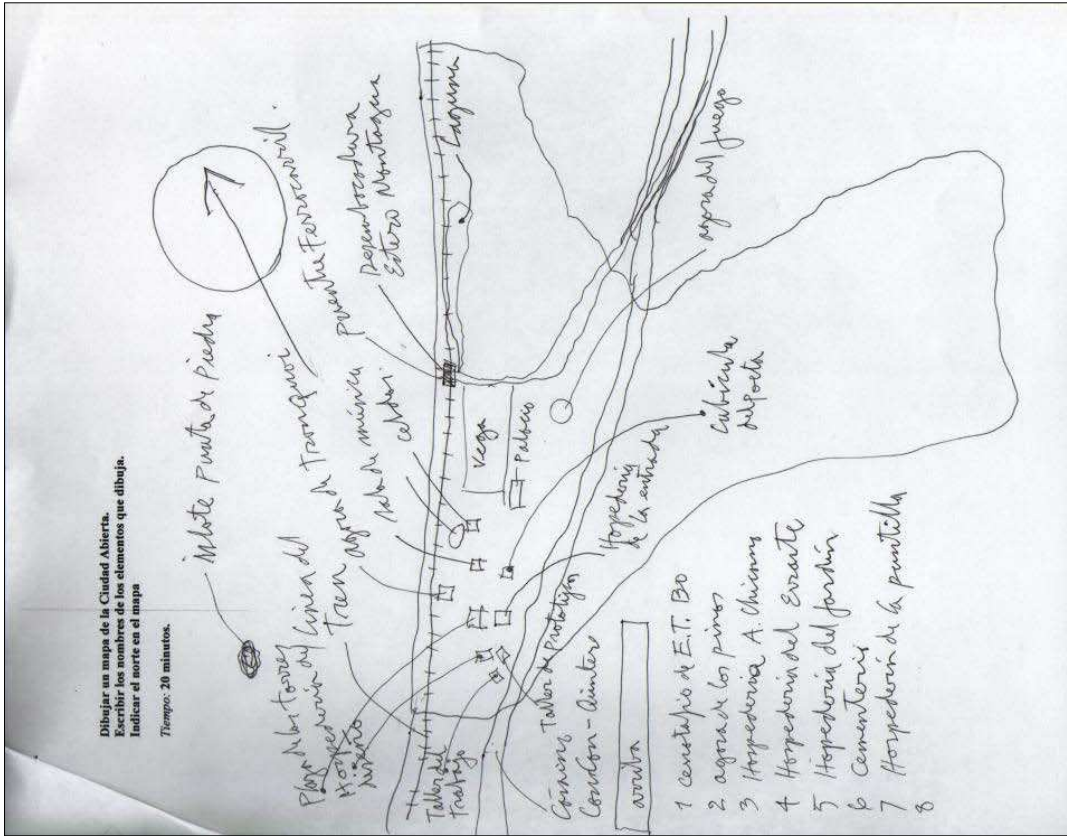 Dibujar un mapa de la Ciudad Abierta.
Escribir los nombres de los elementos que dibuja.
Indicar el norte en el mapa
Tiempo: 20 minutos.
islote Punta de Piedra
Plaza de las torres
Hospedería del
diseño
Línea del
Tren
agora de Tronquoi
sala de música
celdas.
Puente Ferrocarril.
Desembocadura
Estero Mantagua
Laguna
Taller del
trabajo
vega
Palacio
agora del fuego
Cubícula
del poeta
Hospedería
de la entrada
Taller de Prototipos
Camino
Concon-Quintero
arriba
1 cenotafio de E.T. BO
2 agora de los pinos
3 Hospedería A.
4 Hospedería del Errante
5 Hospedería del jardín
6 Cementerio
7 Hospedería de la puntilla
8